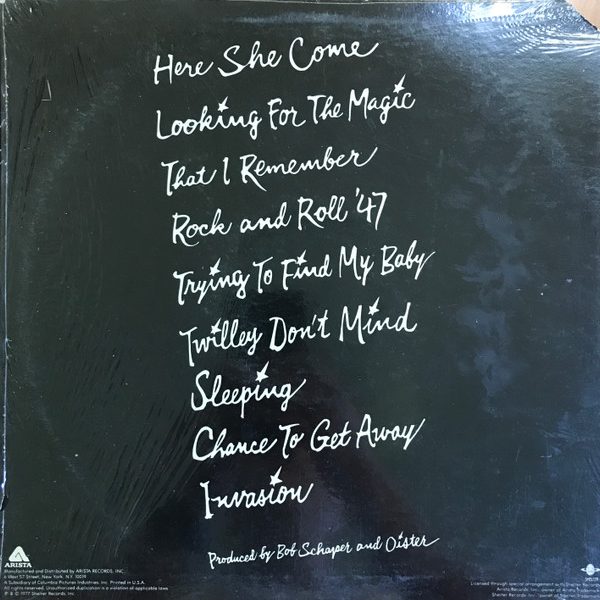 Here She Come
Looking For The Magic
That I Remember
Rock and Roll '47
Trying To Find My Baby
Twilley Don't Mind
Sleeping
Chance To Get Away
Invasion
Produced by Bob Schaper and Oister
ARISTA
Manufactured and Distributed by ARISTA RECORDS, INC.,
6 West 57 Street, New York, N.Y. 10019
A Subsidiary of Columbia Pictures Industries, Inc. Printed in U.S.A.
All rights reserved. Unauthorized duplication is a violation of applicable laws.
℗ & © 1977 Shelter Records, Inc.
SHELTER
Licensed through special arrangement with Shelter Records
Arista Records, Inc., owner of Arista Trademark
Shelter Records Inc., owner of Shelter Trademark